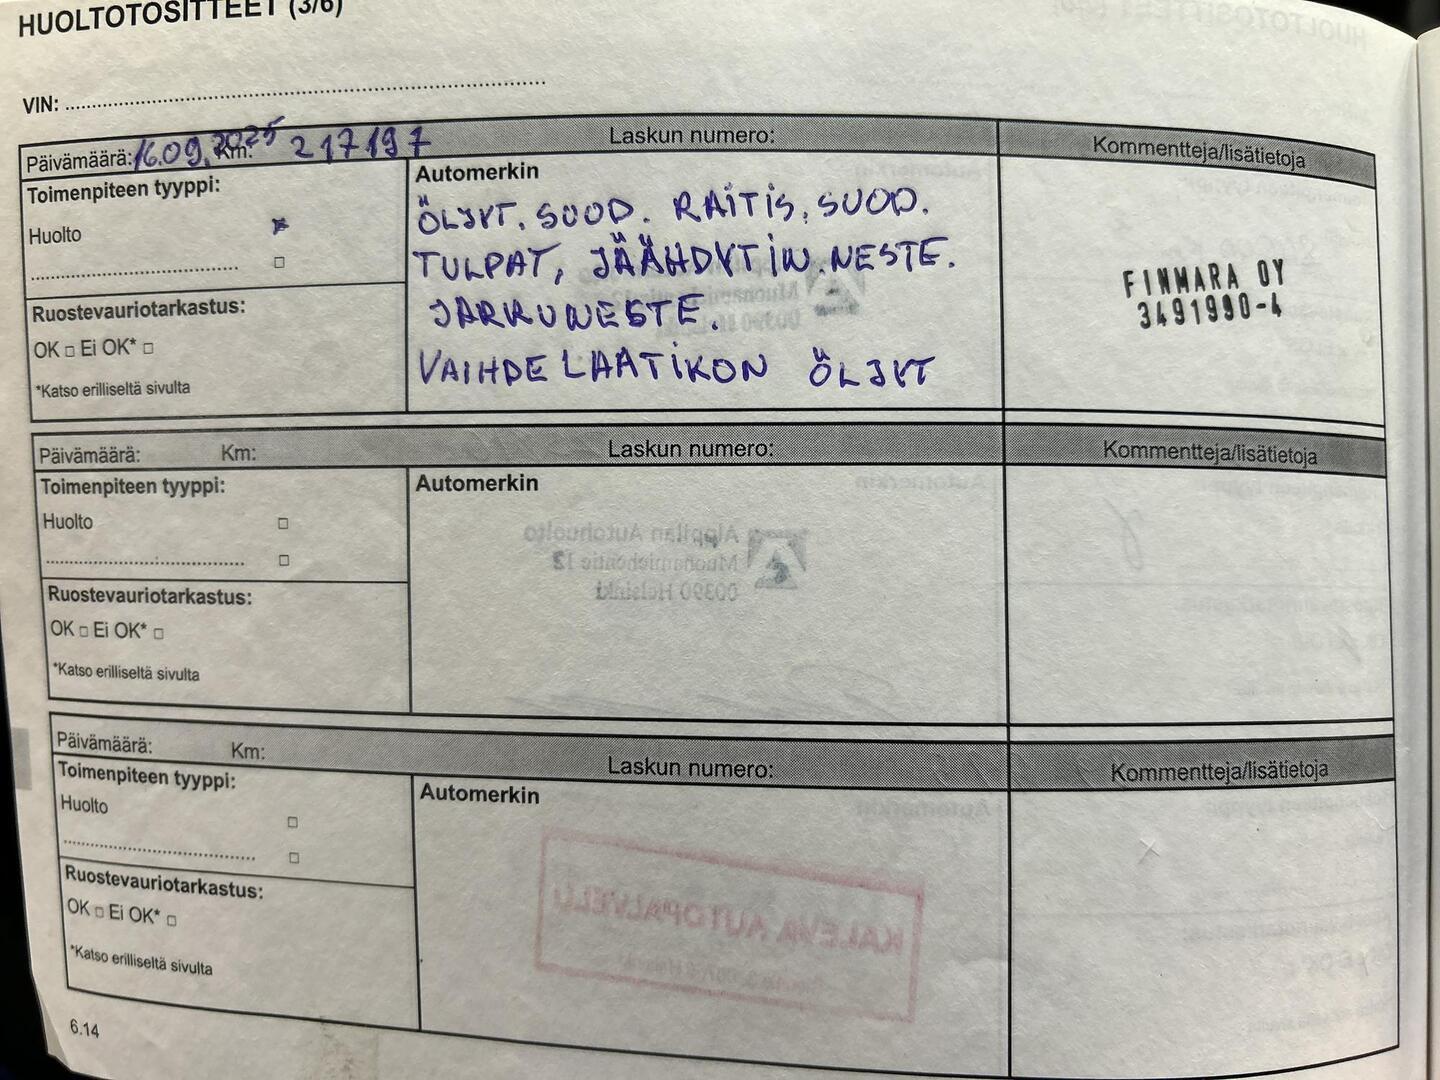 HUOLTOTOSITTEET (3/6)
VIN:
Päivämäärä: 16.09.2025 Km: 217197
Laskun numero:
Kommentteja/lisätietoja
Toimenpiteen tyyppi:
Huolto
Ruostevauriotarkastus:
OK □ Ei OK* □
*Katso erilliseltä sivulta
Automerkin
ÖLJYT. SUOD. RAITIS. SUOD.
TULPAT, JÄÄHDYTIN.NESTE.
JARRUNESTE.
VAIHDELAATIKON ÖLJYT
FINMARA OY
3491990-4
Päivämäärä: Km:
Laskun numero:
Kommentteja/lisätietoja
Toimenpiteen tyyppi:
Huolto □
□
Ruostevauriotarkastus:
OK □ Ei OK* □
*Katso erilliseltä sivulta
Automerkin
Alppilan Autohuolto
Muonamiehentie 12
00390 Helsinki
Päivämäärä: Km:
Laskun numero:
Kommentteja/lisätietoja
Toimenpiteen tyyppi:
Huolto □
□
Ruostevauriotarkastus:
OK □ Ei OK* □
*Katso erilliseltä sivulta
Automerkin
KALEVA AUTOPALVELU
6.14